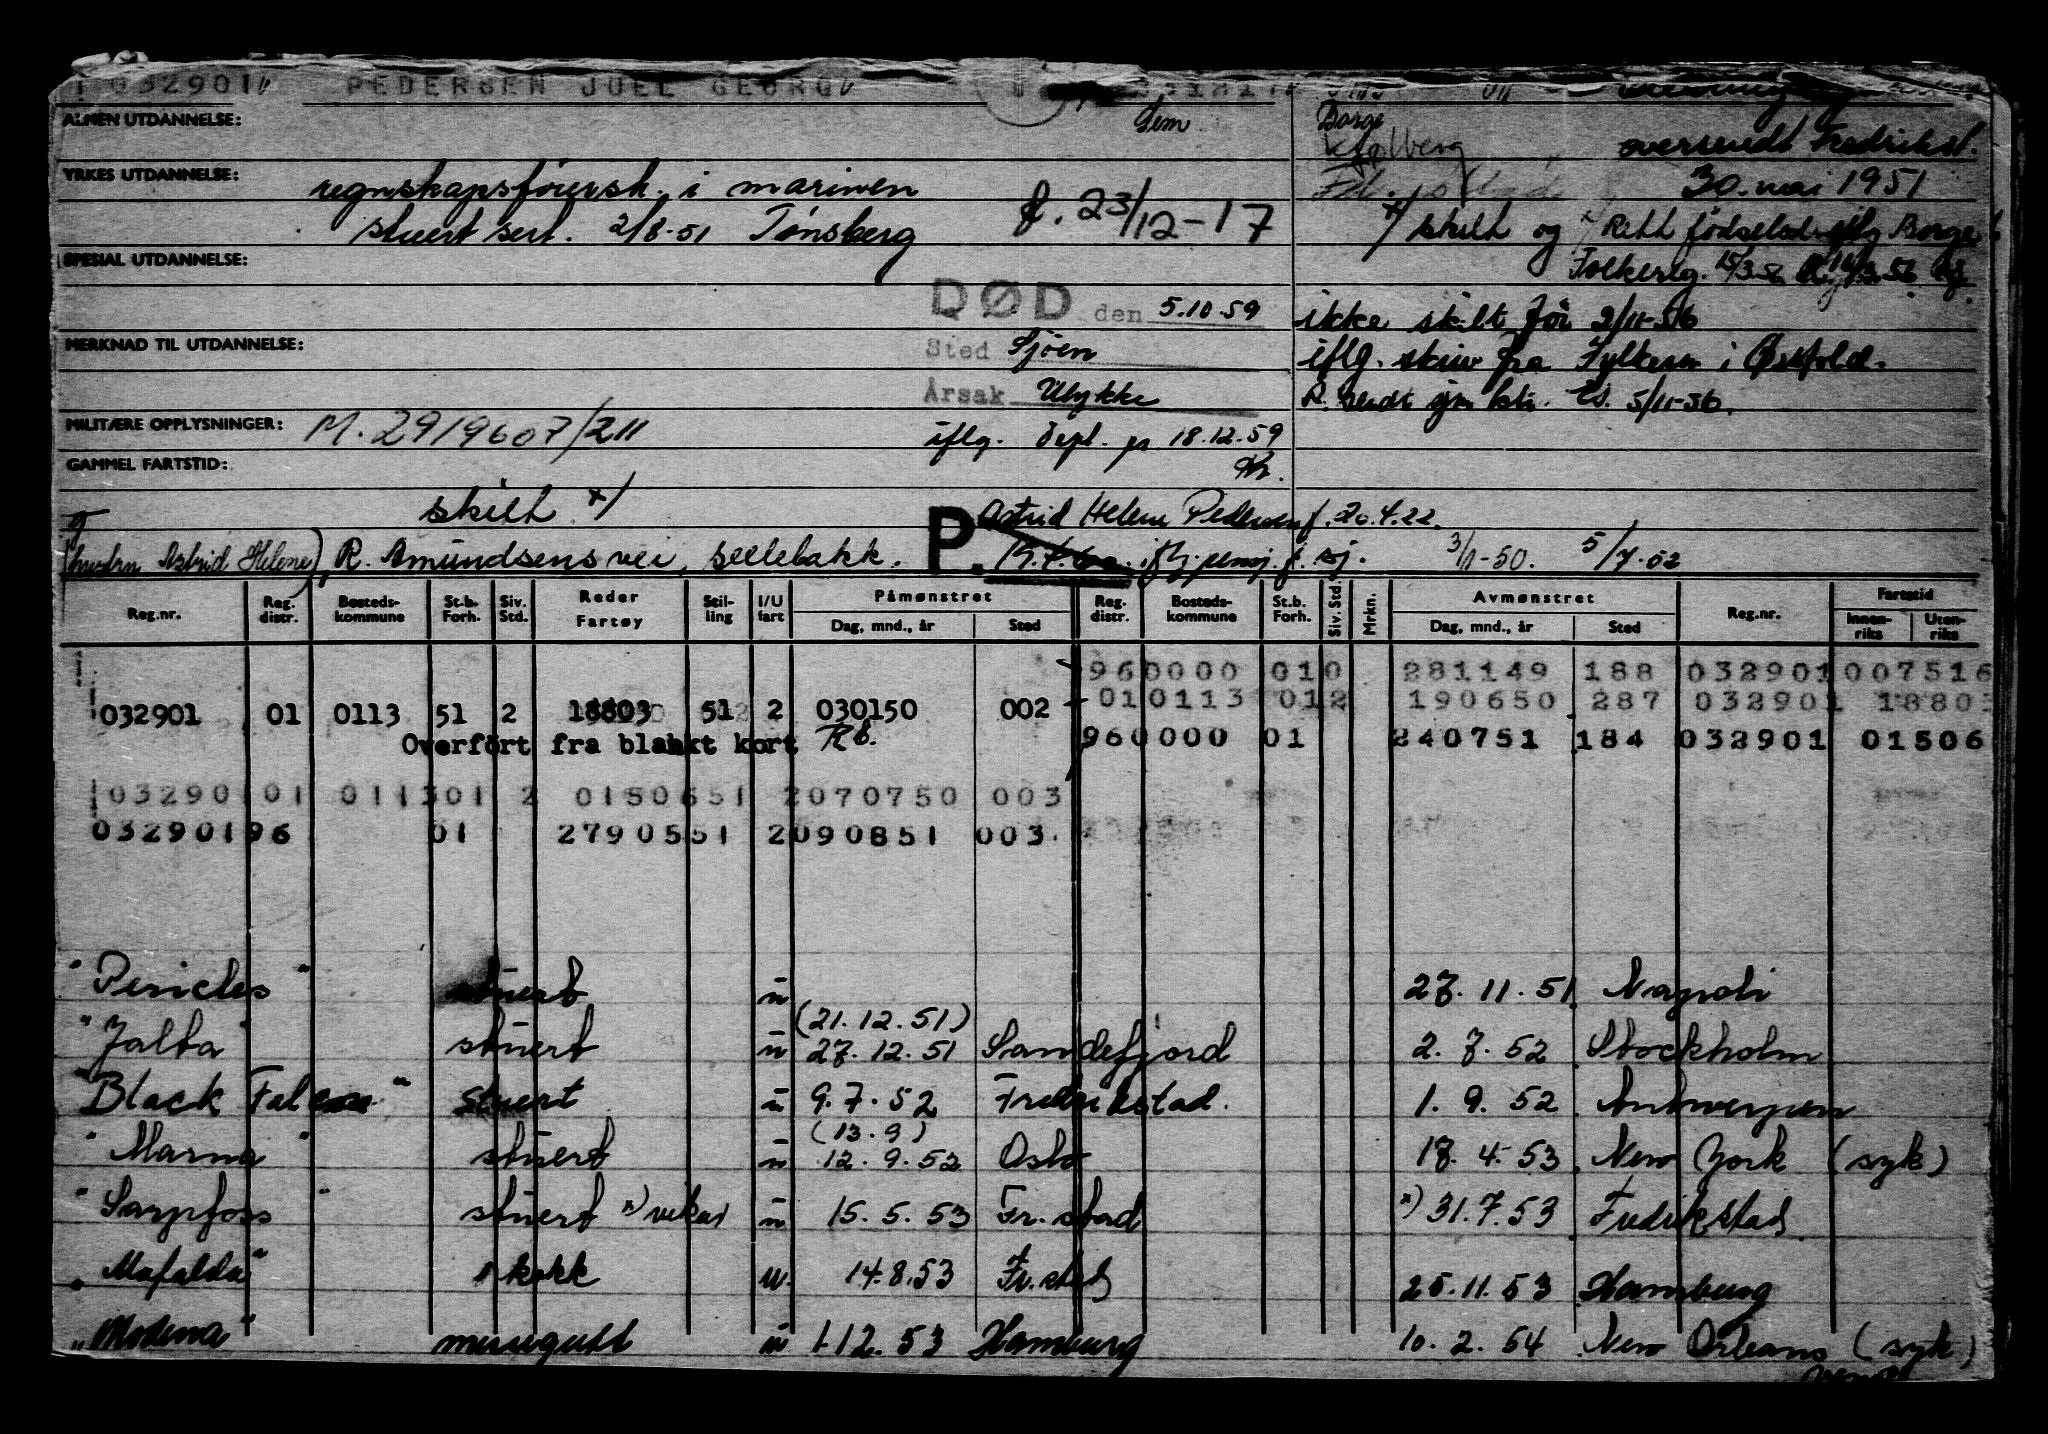 032901 PEDERSEN JOEL GEORG
ALMEN UTDANNELSE: Sem Borge
oversendt Fredrikst.
YRKES UTDANNELSE: regnskapsførersk. i marinen 30. mai 1951
stuert sert. 2/8-51 Tønsberg f. 23/12-17 x/ skilt og Rett fødselsd. iflg Borge
SPESIAL UTDANNELSE: Folkereg. 15/3.56
DØD den 5.10.59 ikke skilt før 2/11-56
MERKNAD TIL UTDANNELSE: Sted Sjøen iflg. skriv fra Fylkesm i Østfold.
Årsak Ulykke R. sendt 5/11-56.
MILITÆRE OPPLYSNINGER: M. 2919607/211 iflg. 18.12.59
GAMMEL FARTSTID:
skilt x/ Astrid Helene Pedersen f. 20.4.22.
(hustru Astrid Helene) R. Amundsens vei, sellebakk. P. 3/1-50. 5/7.52
Reg.nr. Reg. distr. Bosteds-kommune St.b. Forh. Siv. Std. Reder Fartøy Stil-ling I/U fart Påmønstret Dag, mnd., år Sted Reg. distr. Bosteds-kommune St.b. Forh. Siv. Std. Mrkn. Avmønstret Dag, mnd., år Sted Reg.nr. Fartstid Innen-riks Uten-riks
960000 010 281149 188 032901 007516
010113 012 190650 287 032901 1880
032901 01 0113 51 2 18803 51 2 030150 002
Overført fra blankt kort 960000 01 240751 184 032901 01506
032901 01 0113 01 2 01506 51 2 070750 003
032901 96 01 27905 51 2 090851 003
"Pericles" stuert u 27.11.51 Napoli
(21.12.51)
"Jalta" stuert u 27.12.51 Sandefjord 2.7.52 Stockholm
"Black Falcon" stuert u 9.7.52 Fredrikstad. 1.9.52 Antwerpen
(13.9)
"Marna" stuert u 12.9.52 Oslo 18.4.53 New York (syk)
"Sarpfoss" stuert x) vikar u 15.5.53 Fr.stad x) 31.7.53 Fredrikstad
"Mafalda" kokk u. 14.8.53 Fr.stad 25.11.53 Hamburg
"Modena" messegutt u 1.12.53 Hamburg 10.2.54 New Orleans (syk)